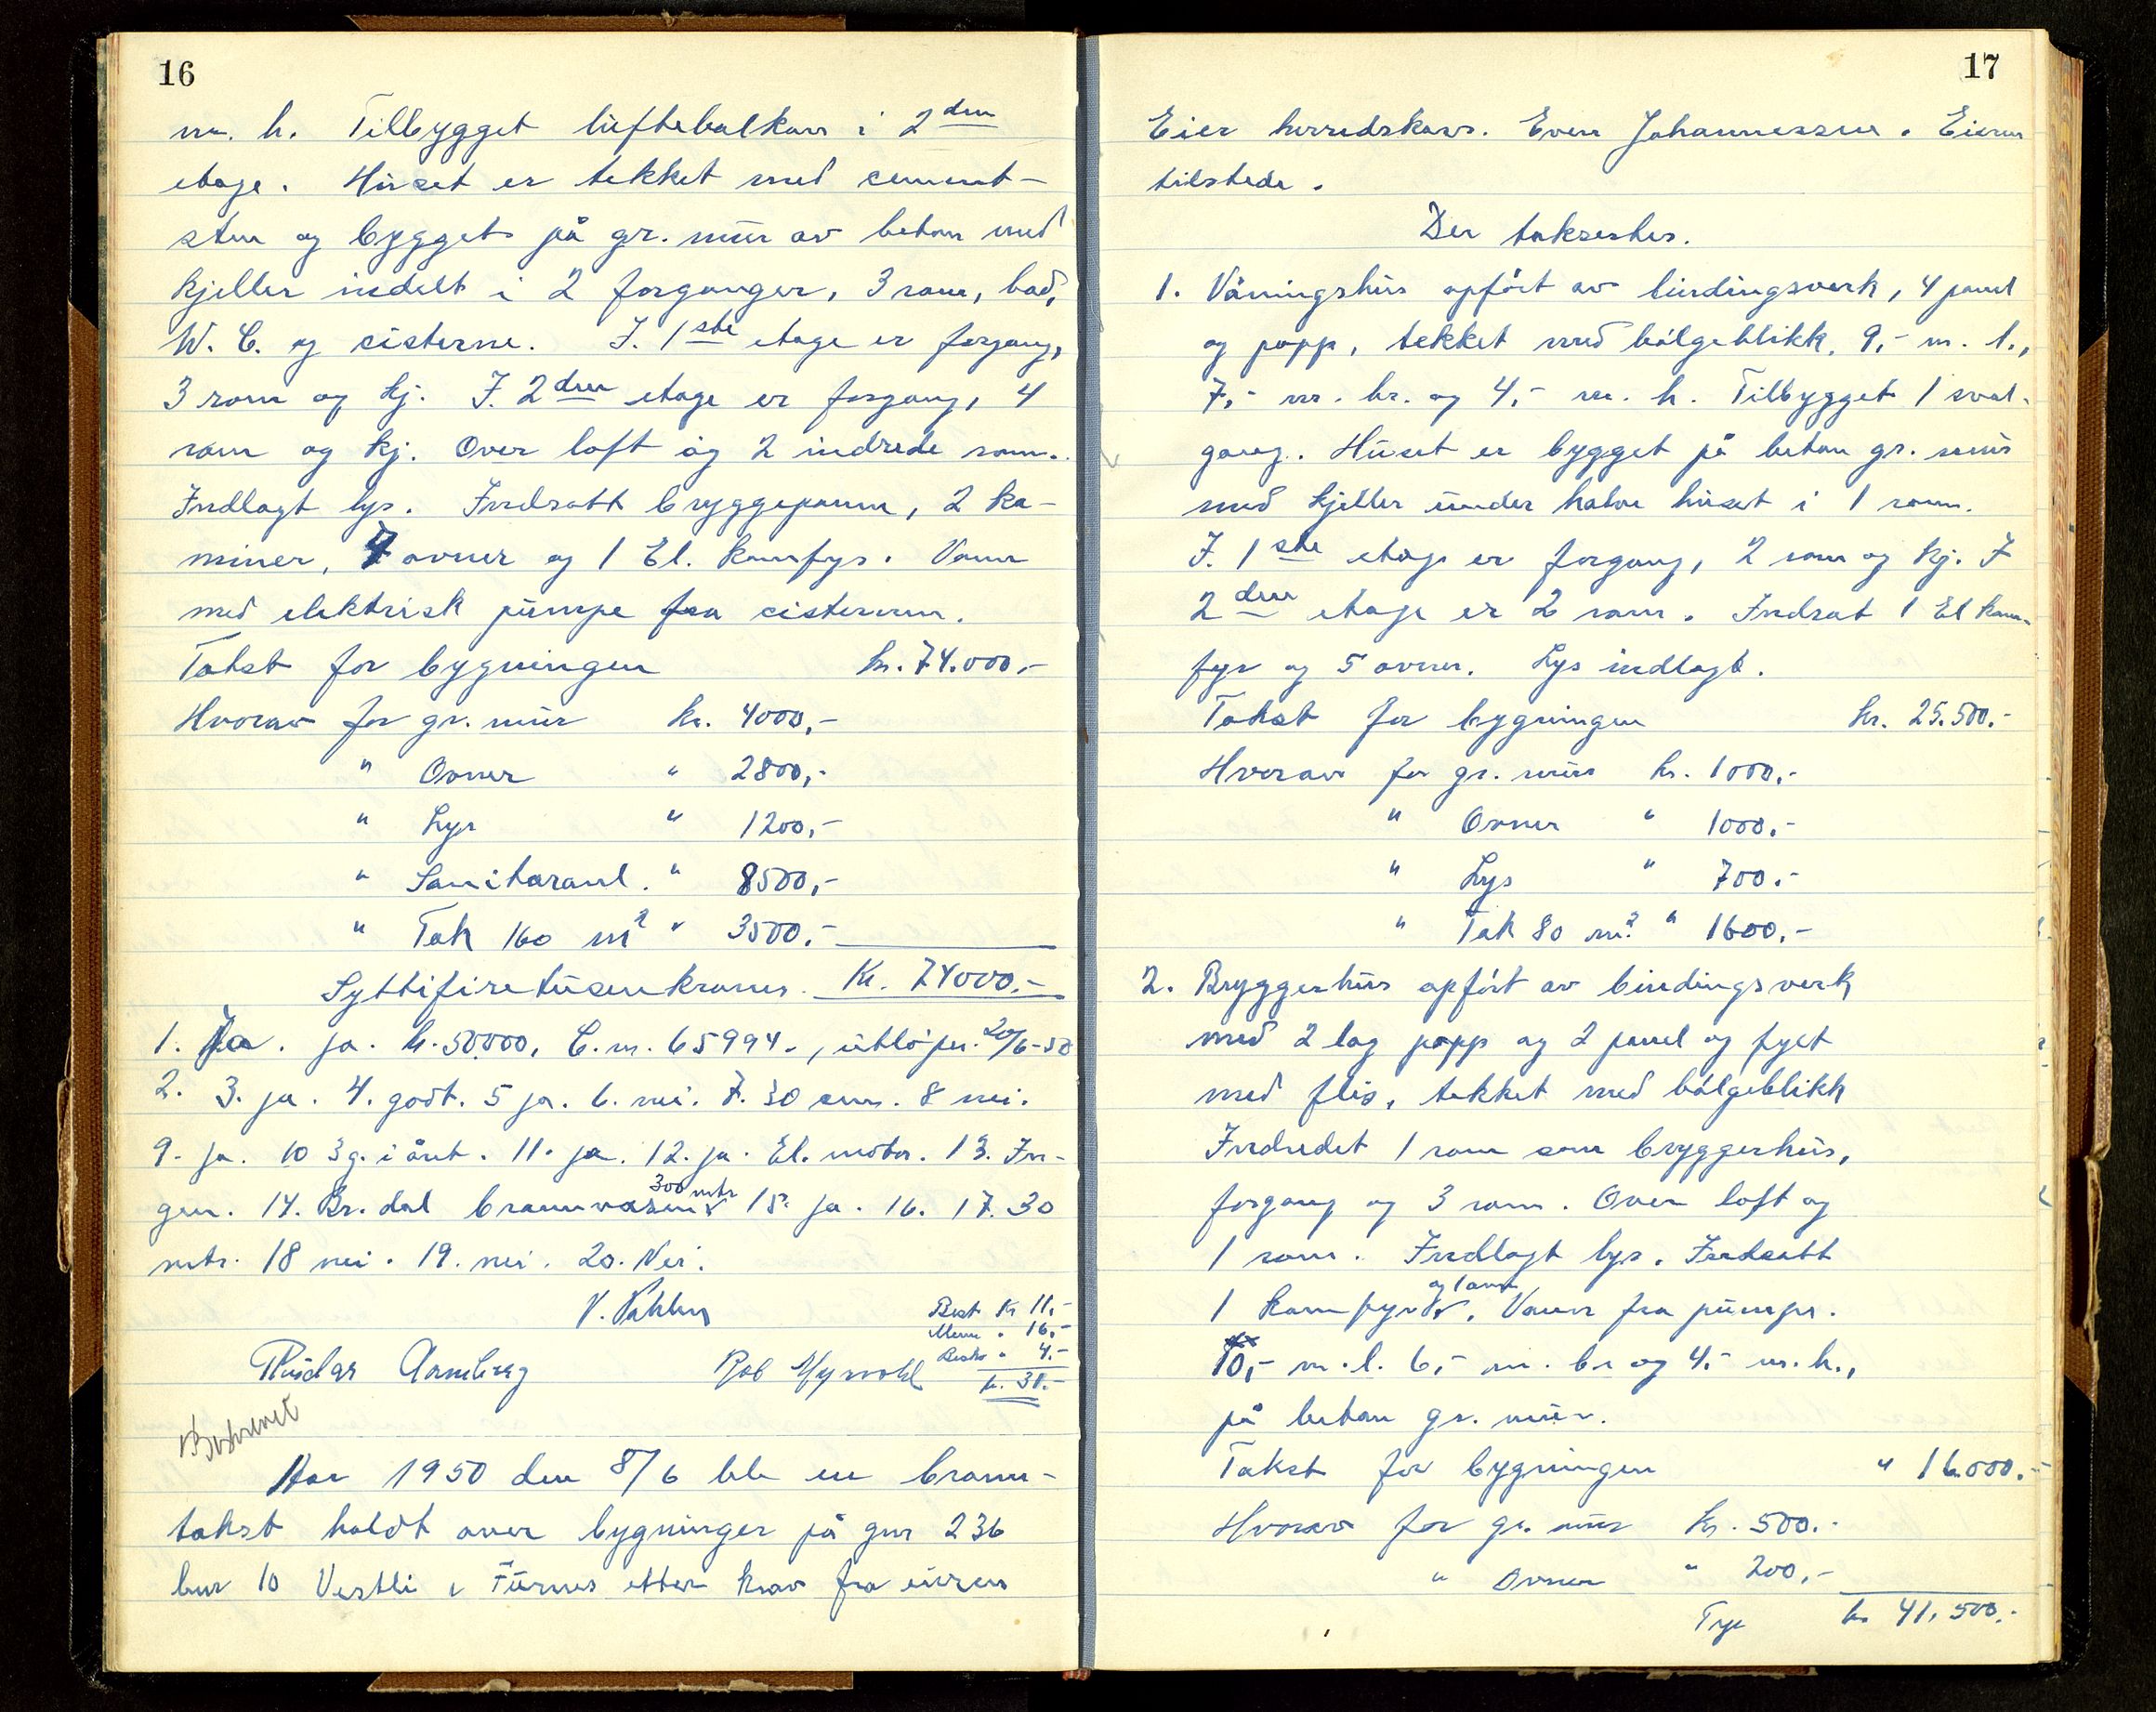 16
m. h. Tilbygget luftebalkon i 2den
etage. Huset er tekket med cement-
sten og bygget på gr. mur av beton med
kjeller indelt i 2 forganger, 3 rom, bad,
W. C. og cisterne. I. 1ste etage er forgang,
3 rom og kj. I. 2den etage er forgang, 4
rom og kj. Over loft og 2 indrede rom.
Indlagt lys. Indsatt bryggepanne, 2 ka-
miner, 7 ovner og 1 El. komfyr. Vann
med elektrisk pumpe fra cisternen.
Takst for bygningen kr. 74.000,-
Hvorav for gr. mur kr. 4000,-
" Ovner " 2800,-
" Lys " 1200,-
" Sanitæranl. " 8500,-
" Tak 160 m2 " 3500,-
Syttifiretusenkroner. Kr. 74000.-
1. Ja. ja. kr. 50.000, C. nr. 65994-, utløper 20/6-50
2. 3. ja. 4. godt. 5 ja. 6. nei. 7. 30 cm. 8 nei.
9. ja. 10 3 g. i året. 11. ja. 12. ja. El. motor. 13. In-
gen. 14. Br. dal brannvasen 300 mtr 15. ja. 16. 17. 30
mtr. 18 nei. 19. nei. 20. Nei.
Best Kr 11,-
Menn " 16,-
" 4,-
kr. 31.-
Rob Myrvold
År 1950 den 8/6 ble en brann-
takst holdt over bygninger på gnr 236
bnr 10 Vestli i Furnes etter krav fra eieren
17
Eier herredskass. Even Johannessen. Eieren
tilstede.
Der takserstes.
1. Våningshus opført av bindingsverk, 4 panel
og papp, tekket med bølgeblikk, 9,- m. l.,
7,- m. br. og 4,- m. h. Tilbygget 1 sval-
gang. Huset er bygget på beton gr. mur
med kjeller under halve huset i 1 rom.
I. 1ste etage er forgang, 2 rom og kj. I
2den etage er 2 rom. Indsat 1 El kom-
fyr og 5 ovner. Lys indlagt.
Takst for bygningen kr. 25.500.-
Hvorav for gr. mur kr. 1000.-
" Ovner " 1000.-
" Lys " 700.-
" Tak 80 m2. " 1600.-
2. Bryggerhus opført av bindingsverk
med 2 lag papp og 2 panel og fyet
med flis, tekket med bølgeblikk
Indredet 1 rom som bryggerhus,
forgang og 3 rom. Over loft og
1 rom. Indlagt lys. Indsatt
1 komfyr og 1 ovn. Vann fra pumpe.
10,- m. l. 6,- m. br og 4.- m. h.,
på beton gr. mur.
Takst for bygningen " 16.000.-
Hvorav for gr. mur kr. 500.-
" Ovner " 200,-
kr 41.500.-